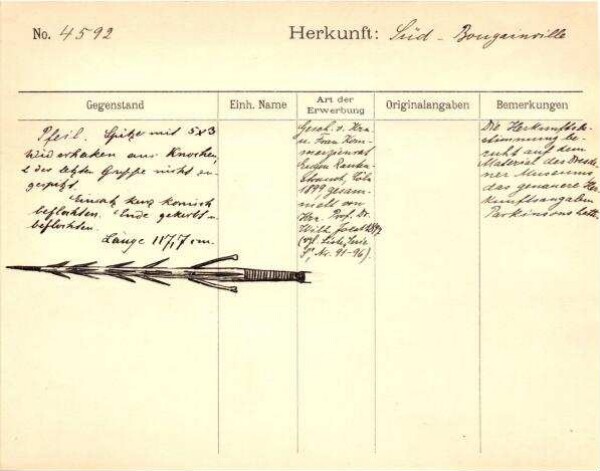 No. 4592
Herkunft: Süd-Bougainville
Gegenstand
Einh. Name
Art der Erwerbung
Originalangaben
Bemerkungen
Pfeil. Spitze mit 5x3
Widerhaken aus Knochen,
2 der letzten Gruppe nicht an-
gespitzt.
Einsatz kurz konisch
beflochten. Ende gekerbt u.
beflochten.
Länge 117,7 cm.
Gesch. v. Hrn
u. Frau Kom-
merzienrat
Eugen Rauten-
strauch, Cöln
1899, gesam-
melt von
Hrn. Prof. Dr.
Wilh. Joest 1897
(vgl. Liste, Serie
Nr. 91-96).
Die Herkunftsbe-
stimmung be-
ruht auf dem
Material des Dresde-
ner Museums,
das genauere Her-
kunftsangaben
Parkinsons hatte.